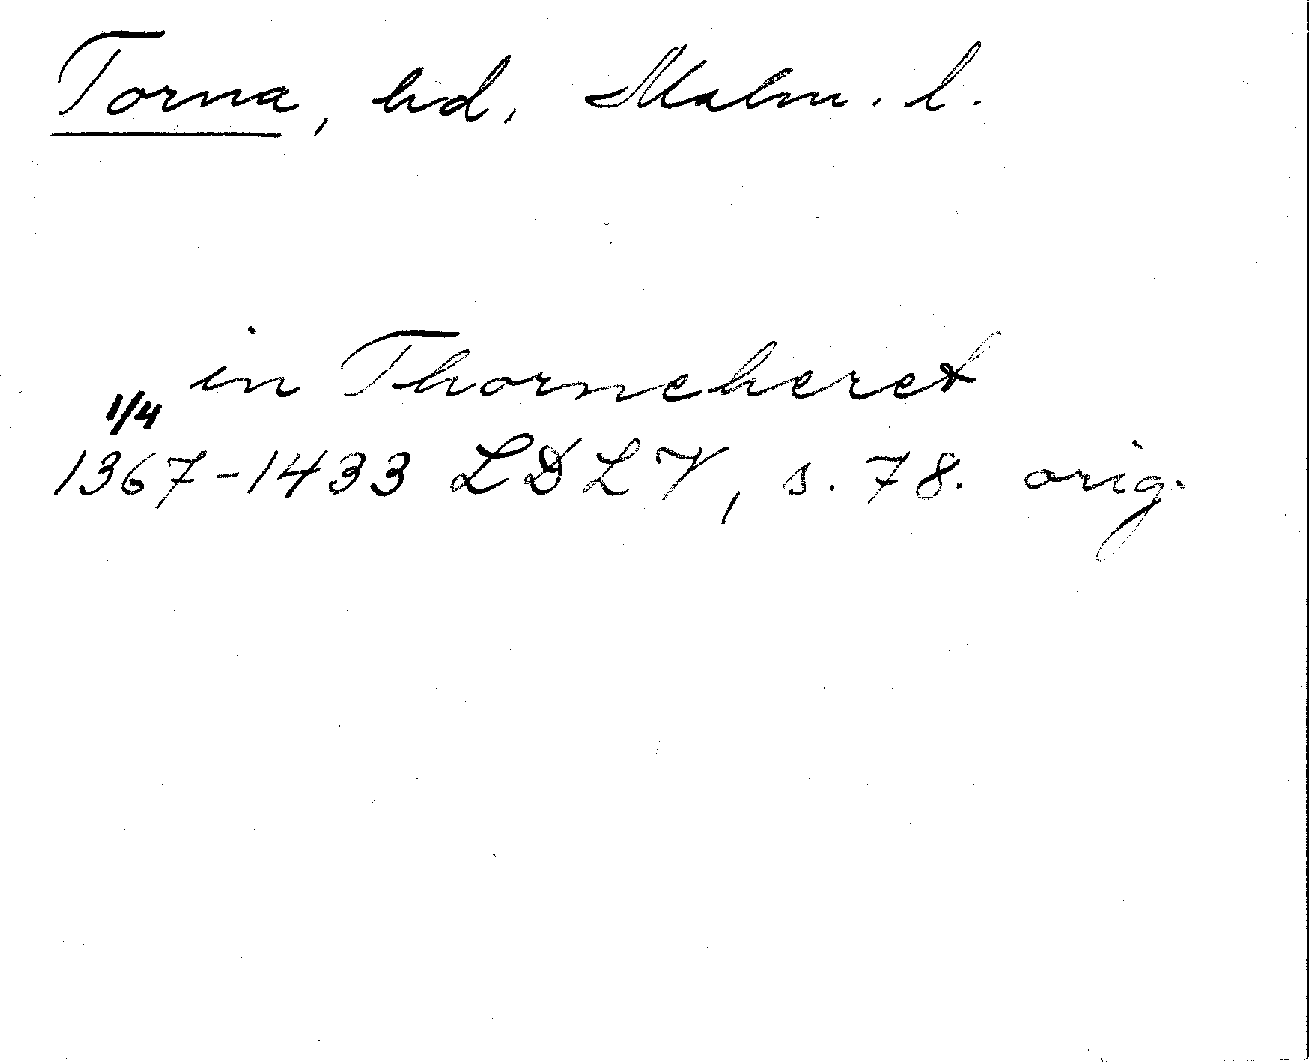 Torna, hd, Malm. l.
in Thorneheret
1/4
1367-1433 LDLV, s. 78. orig.